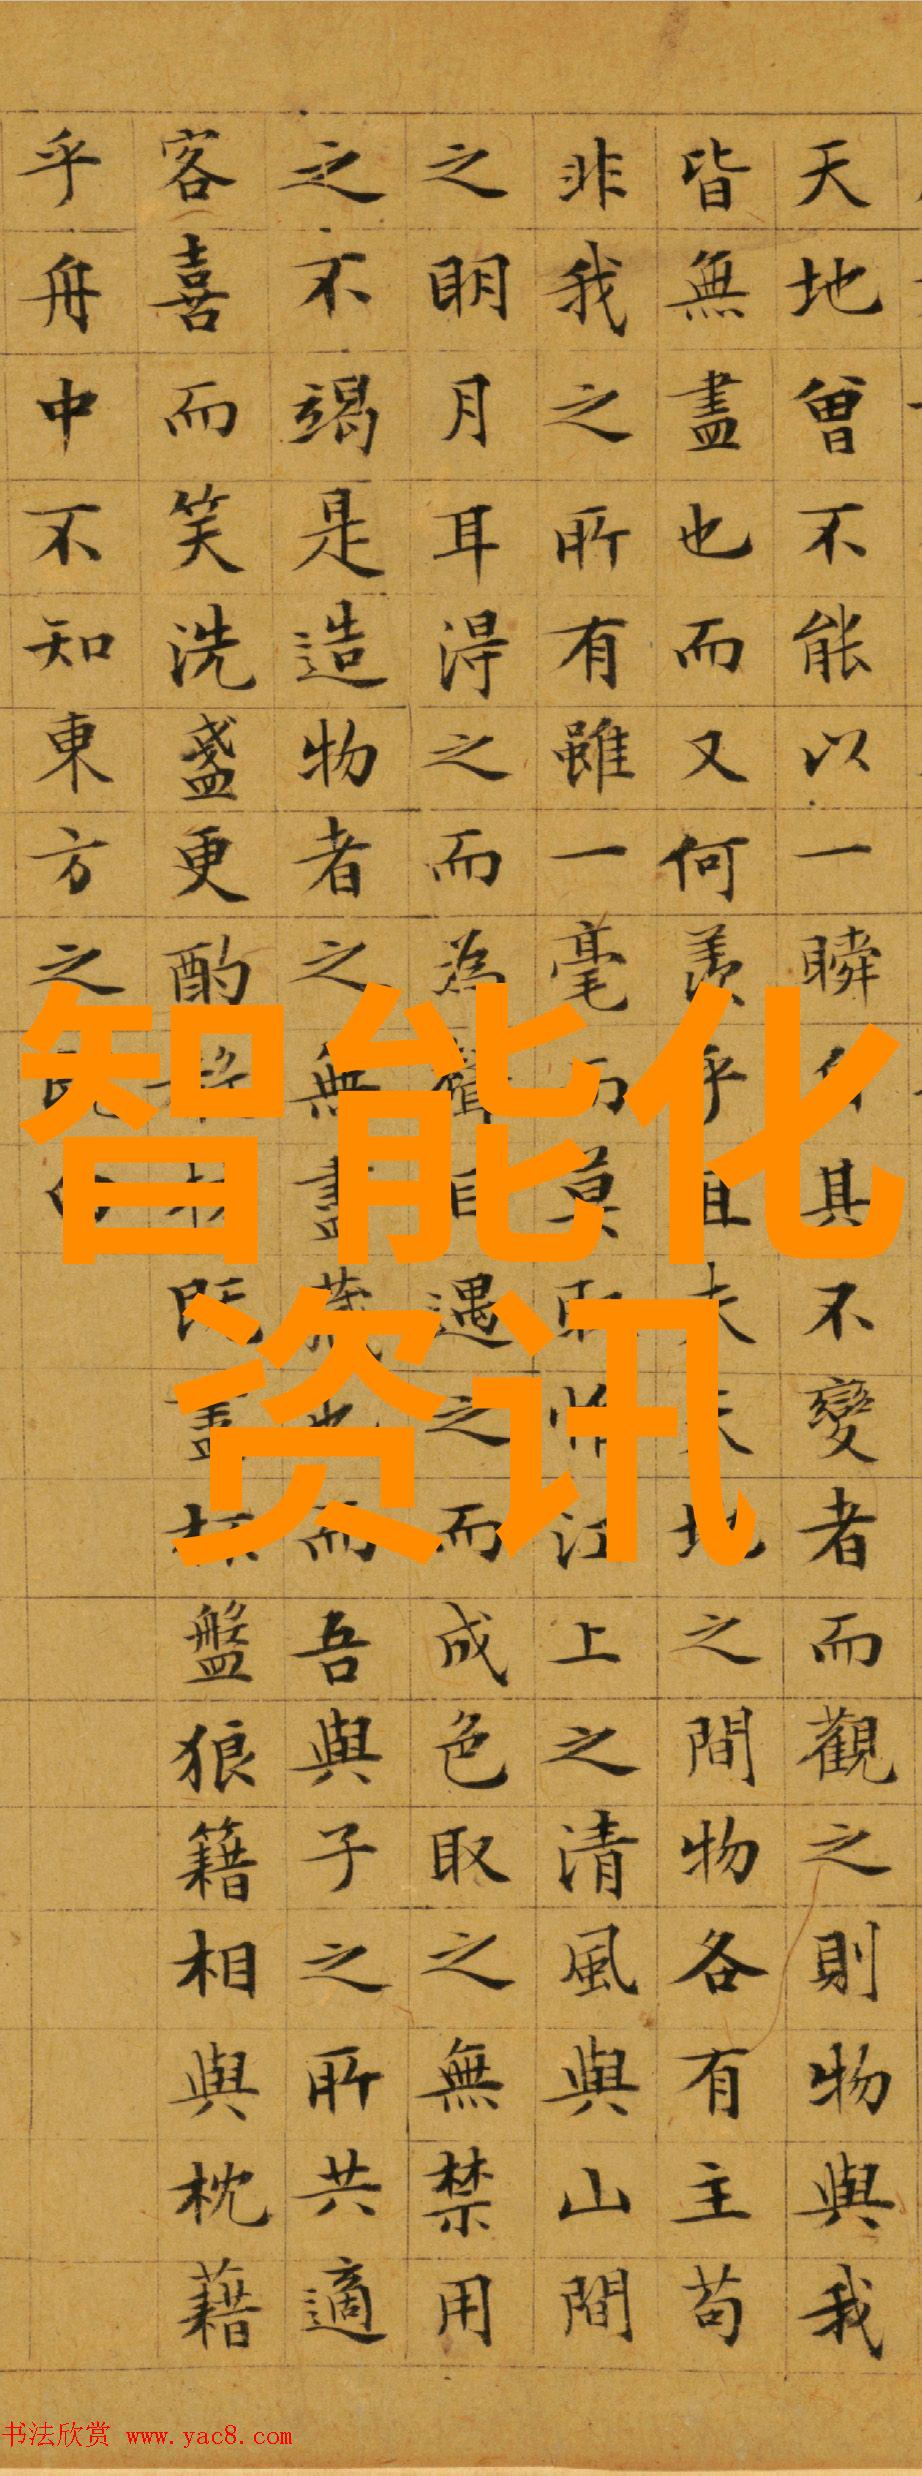 天地曾不能以一瞬其不變者而觀之則物與我
皆無盡也而又何羨乎且夫天地之間物各有主苟
非我之所有雖一毫而莫取惟江上之清風與山間
之明月耳得之而為聲目遇之而成色取之無禁用
之不竭是造物者之無盡藏也而吾與子之所共適
客喜而笑洗盞更酌既盡盤狼籍相與枕藉
乎舟中不知東方之
智能化
资讯
书法欣赏 www.yac8.com